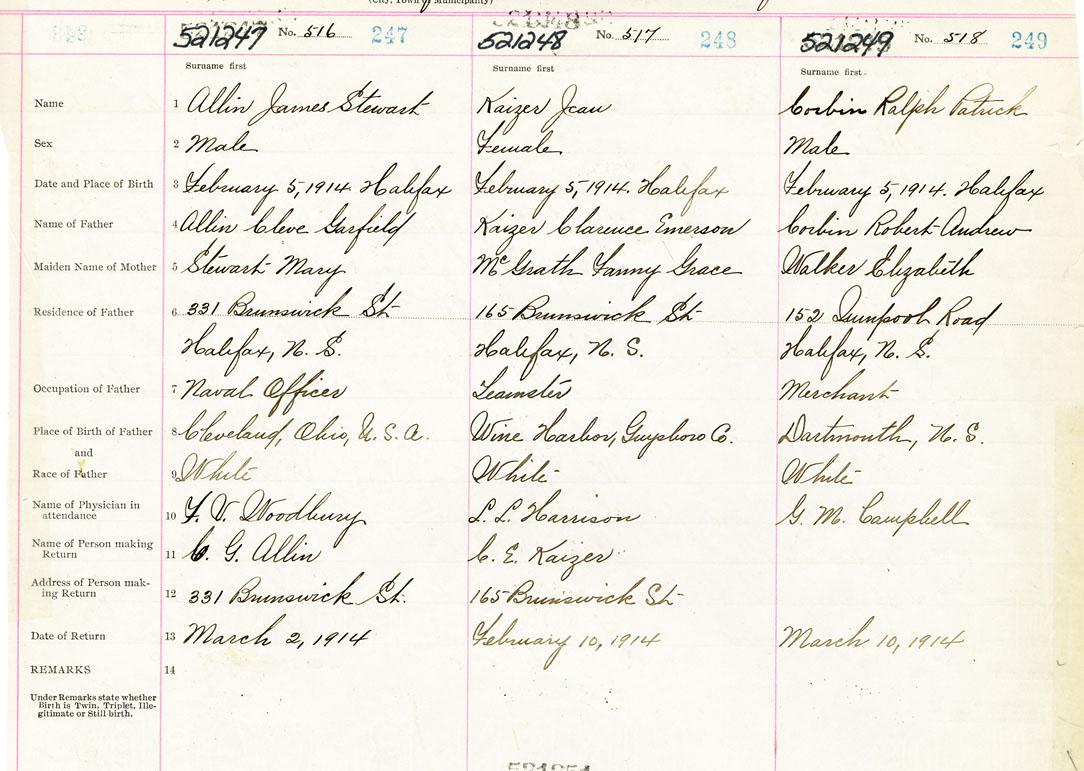 (City, Town or Municipality)
521247 No. 516 247 521248 No. 517 248 521249 No. 518 249
Surname first Surname first Surname first
Name 1 Allin James Stewart Kaizer Jean Corbin Ralph Patrick
Sex 2 Male Female Male
Date and Place of Birth 3 February 5, 1914. Halifax February 5, 1914. Halifax February 5, 1914. Halifax
Name of Father 4 Allin Cleve Garfield Kaizer Clarence Emerson Corbin Robert Andrew
Maiden Name of Mother 5 Stewart Mary McGrath Fanny Grace Walker Elizabeth
Residence of Father 6 331 Brunswick St. 165 Brunswick St. 152 Quinpool Road
Halifax, N. S. Halifax, N. S. Halifax, N. S.
Occupation of Father 7 Naval Officer Teamster Merchant
Place of Birth of Father 8 Cleveland, Ohio, U. S. A. Wine Harbor, Guysboro Co. Dartmouth, N. S.
and
Race of Father 9 White White White
Name of Physician in
attendance 10 F. V. Woodbury L. L. Harrison G. M. Campbell
Name of Person making
Return 11 C. G. Allin C. E. Kaizer
Address of Person mak-
ing Return 12 331 Brunswick St. 165 Brunswick St.
Date of Return 13 March 2, 1914 February 10, 1914 March 10, 1914
REMARKS 14
Under Remarks state whether
Birth is Twin, Triplet, Ille-
gitimate or Still birth.